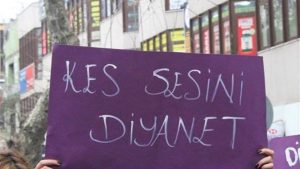 KES SESİNİ
DİYANET
Dİ